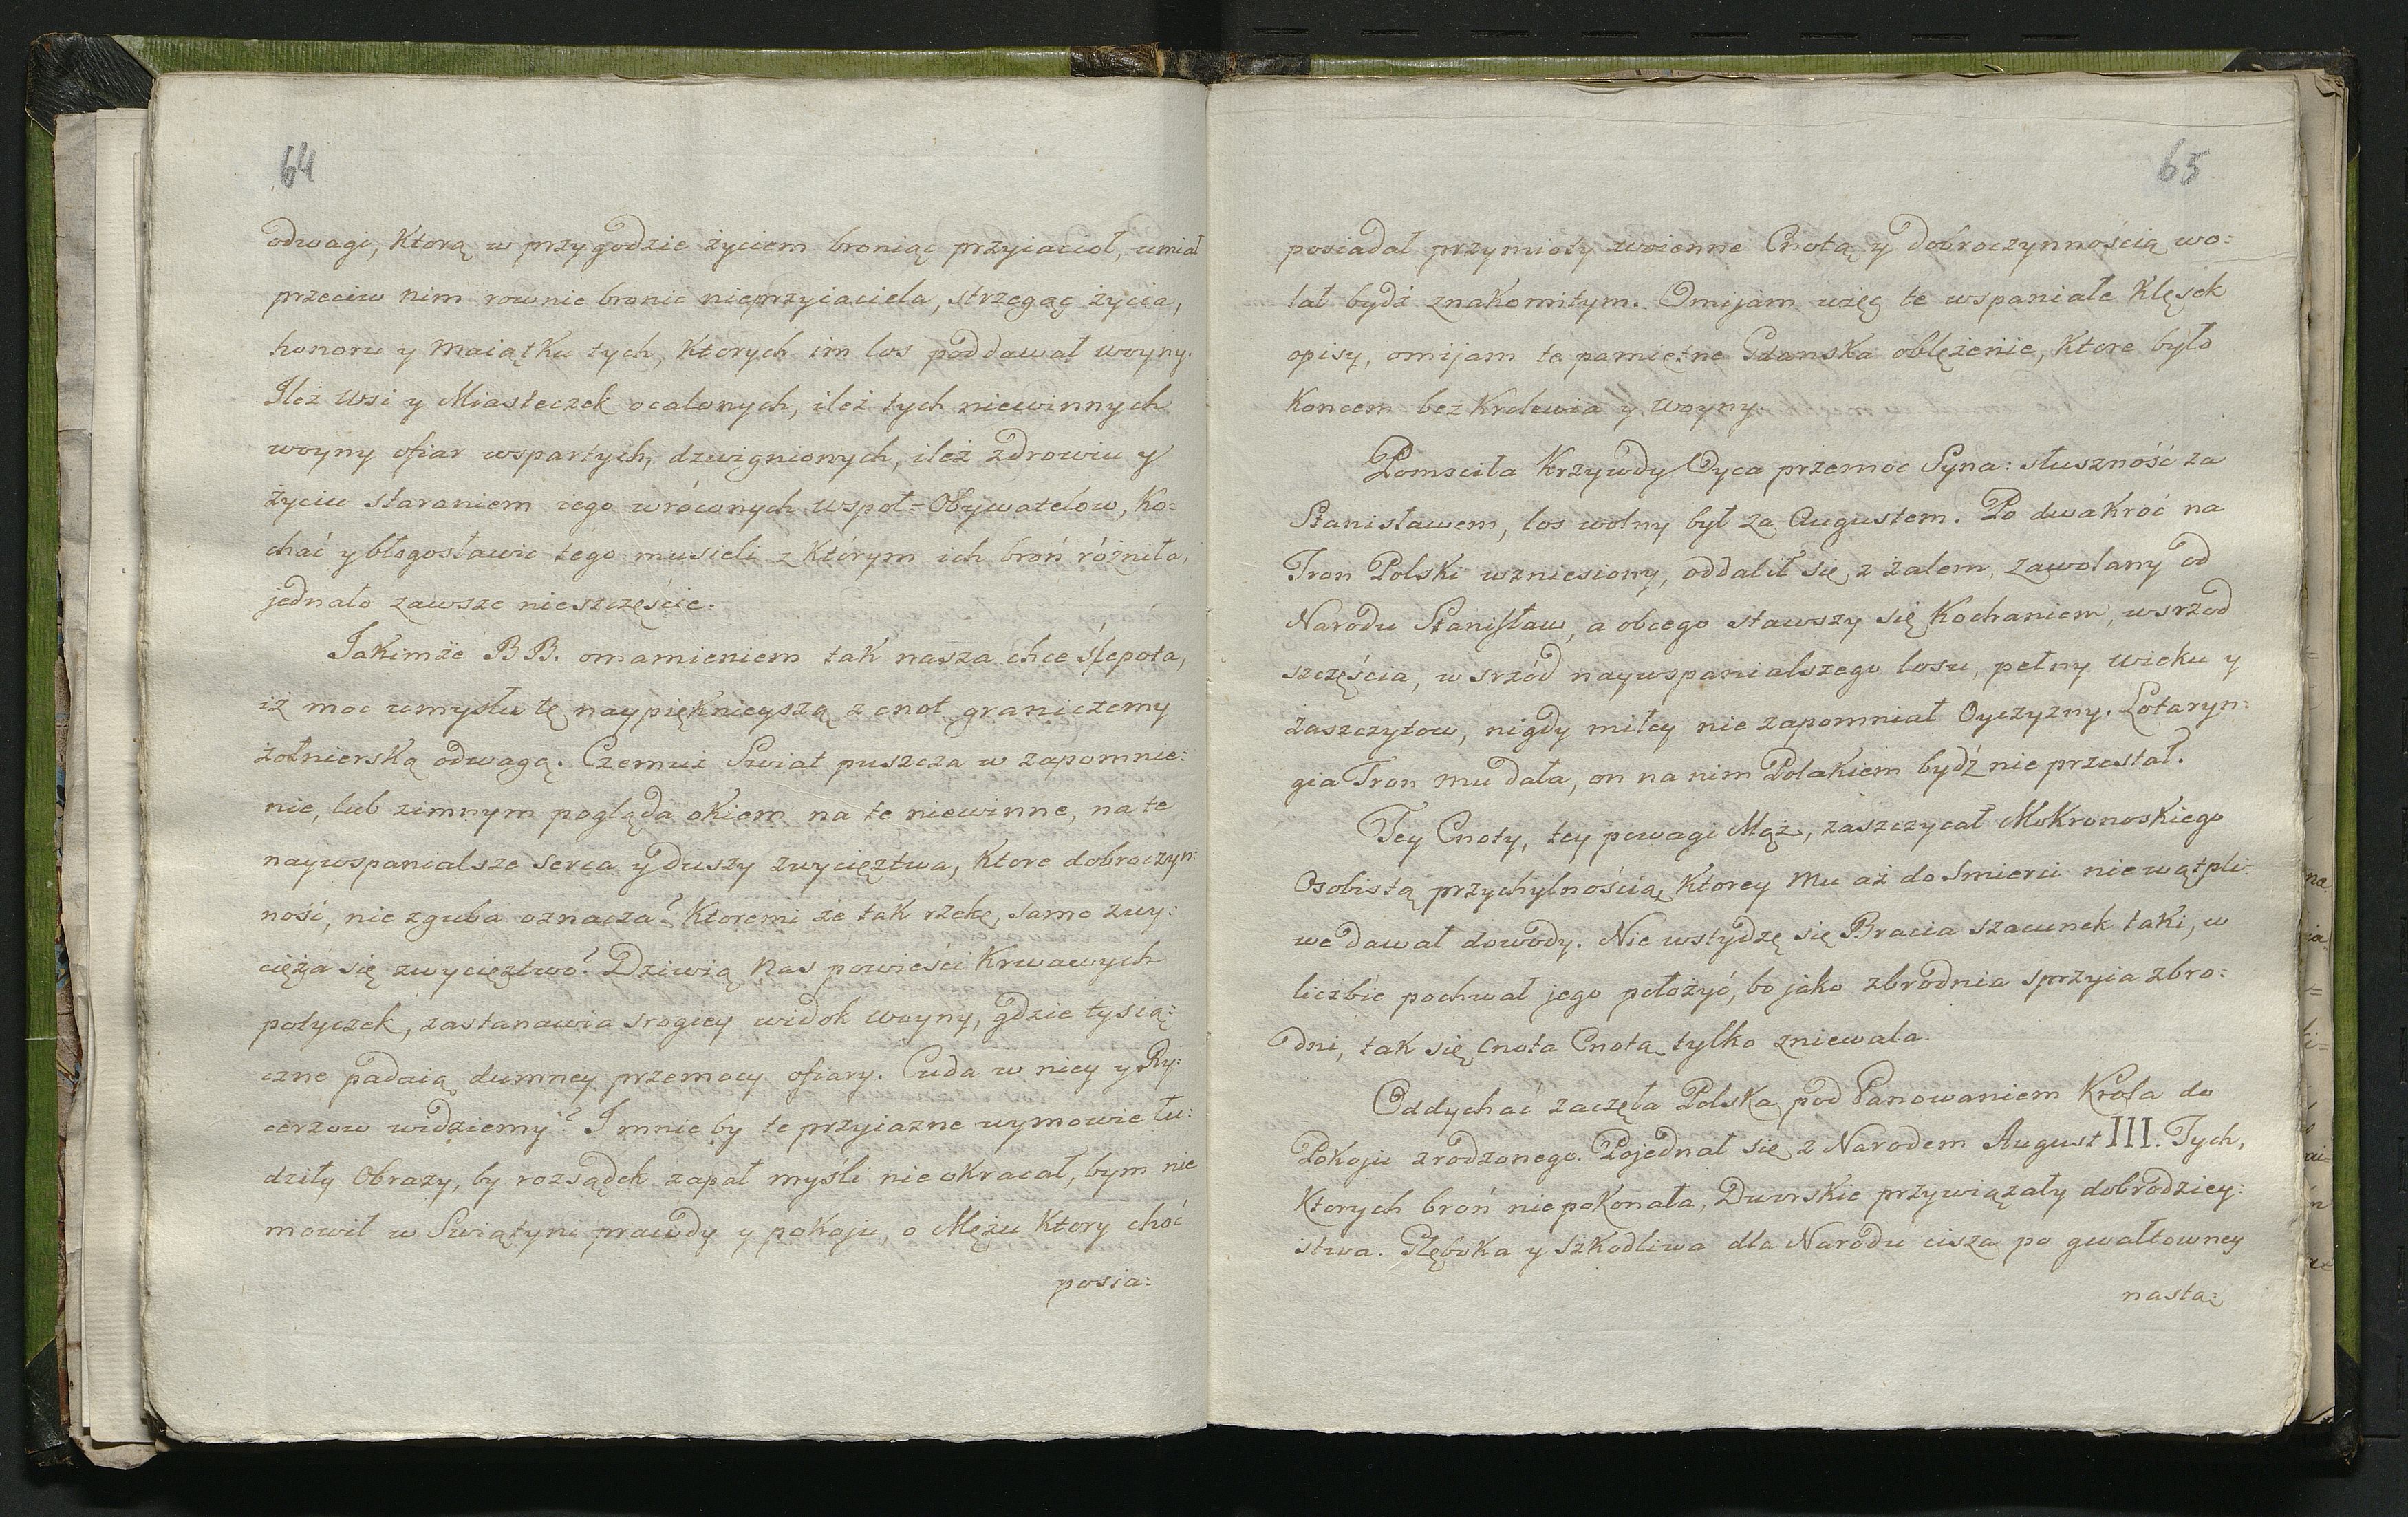 64
odwagi, Ktorą w przygodzie życiem broniąc przyiacioł, umiał
przeciw nim rownie bronic nieprzyiaciela, strzegąc życia,
honoru y Maiątku tych, Ktorych im los poddawał woyny.
Ileż Wsi y Miasteczek ocalonych, ileż tych niewinnych
woyny ofiar wspartych, dzwignionych, ileż zdrowiu y
życiu staraniem iego wróconych wspoł=Obywatelow, Ko=
chać y błogosławic tego musieli z Którym ich broń różniła,
jednało zawsze nieszczęście.
Jakimże BB. omamieniem tak nasza chce ślepota,
iż moc umysłu tę naypięknieyszą z cnot graniczemy
żołnierską odwagą. Czemuż Swiat puszcza w zapomnie:
nie, lub zimnym pogląda okiem na te niewinne, na te
naywspanialsze serca y duszy zwycięztwa, Ktore dobroczyn:
ność, nie zguba oznacza? Ktoremi że tak rzekę, samo zwy:
cięża się zwycięztwo? Dziwią Nas powieści Krwawych
potyczek, zastanawia srogiey widok woyny, gdzie tysią:
czne padaią dumney przemocy ofiary. Cuda w niey y Ry:
cerzow widziemy? I mnie by te przyiazne wymowie łu:
dziły Obrazy, by rozsądek zapał myśli nie okracał, bym nie
mowił w Swiątyni prawdy y pokoju, o Mężu Ktory choć
posia:
65
posiadał przymioty woienne Cnotą y dobroczynnością wo:
lał bydź znakomitym. Omijam więc te wspaniałe Klęsek
opisy, omijam te pamiętne Gdanska oblężenie, Ktore było
Koncem bez Krolewia y Woyny.
Pomsciła Krzywdy Oyca przemoc Syna: słuszność za
Stanisławem, los wolny był za Augustem. Po dwakroć na
Tron Polski wzniesiony, oddalił się z żalem, zawołany od
Narodu Stanisław, a obcego stawszy się Kochaniem, wsrzod
szczęścia, w srzód naywspanialszego losu, pełny wieku y
zaszczytow, nigdy miłey nie zapomniał Oyczyzny. Lotaryn:
gia Tron mu dała, on na nim Polakiem bydź nie przestał.
Tey Cnoty, tey powagi Mąż, zaszczycał Mokronoskiego
Osobistą przychylnością, Ktorey Mu aż do Smierci niewątpli:
we dawał dowody. Nie wstydzę się Bracia szacunek taki, w
liczbie pochwał jego położyć, bo jako zbrodnia sprzyia zbro:
dni, tak się Cnota Cnotą tylko zniewala.
Oddychać zaczęła Polska pod Panowaniem Krola do
Pokoju zrodzonego. Pojednał się z Narodem August III. Tych,
Ktorych broń nie pokonała, Dworskie przywiązały dobrodziey:
stwa. Głęboka y szkodliwa dla Narodu cisza po gwałtowney
nastą: